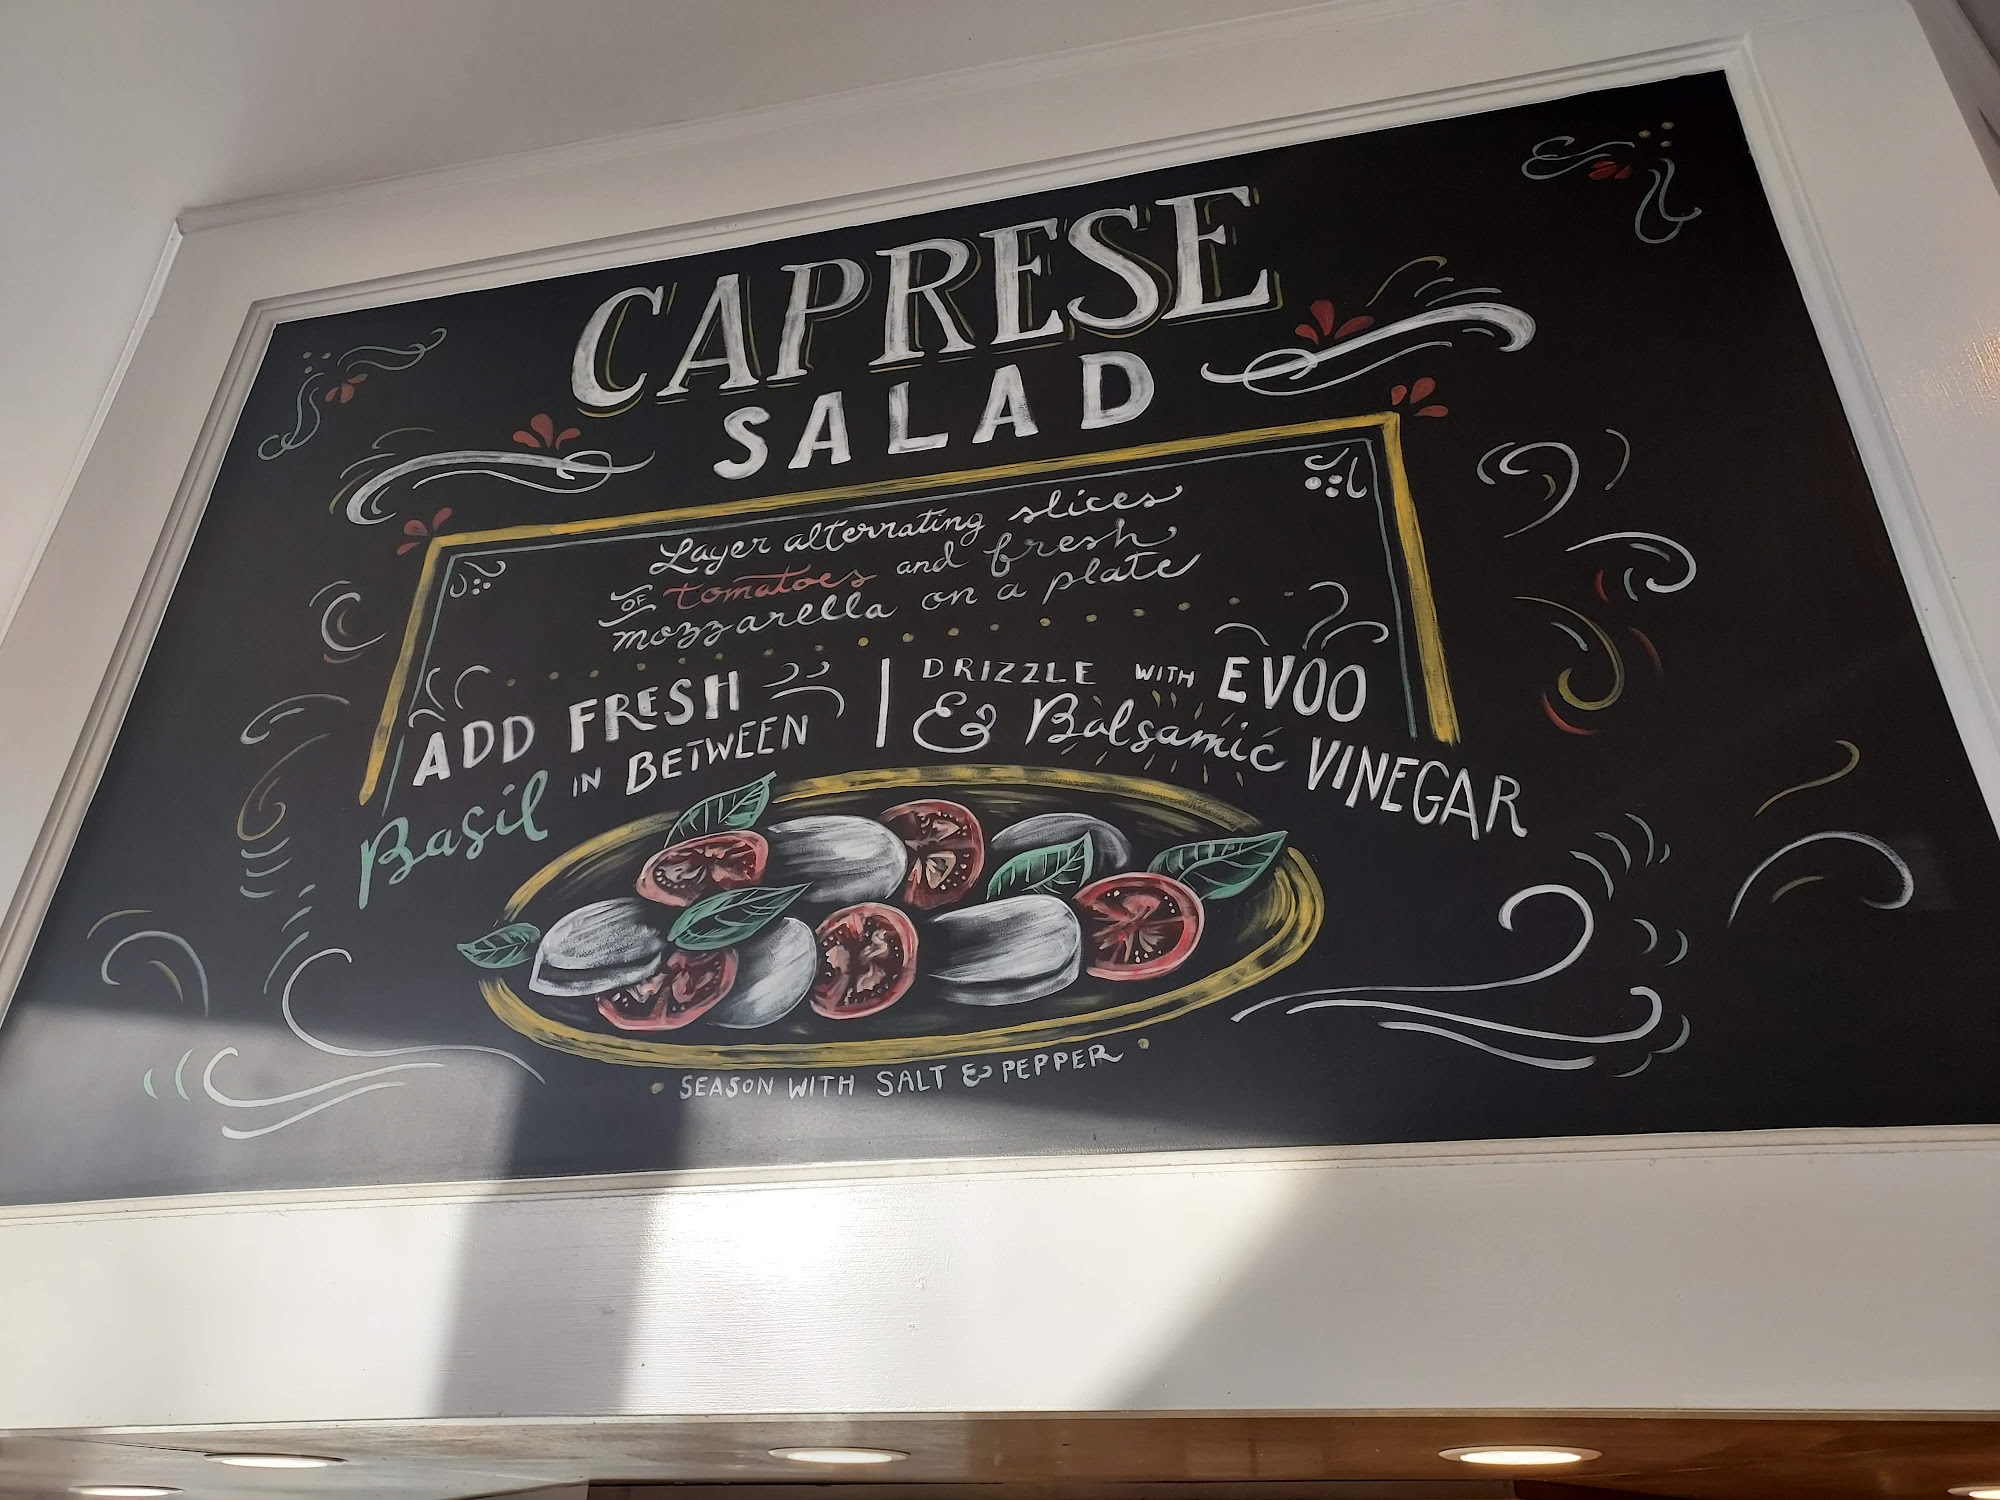 CAPRESE
SALAD
Layer alternating slices
OF tomatoes and fresh
mozzarella on a plate
ADD FRESH
Basil IN BETWEEN
DRIZZLE WITH EVOO
& Balsamic VINEGAR
SEASON WITH SALT & PEPPER